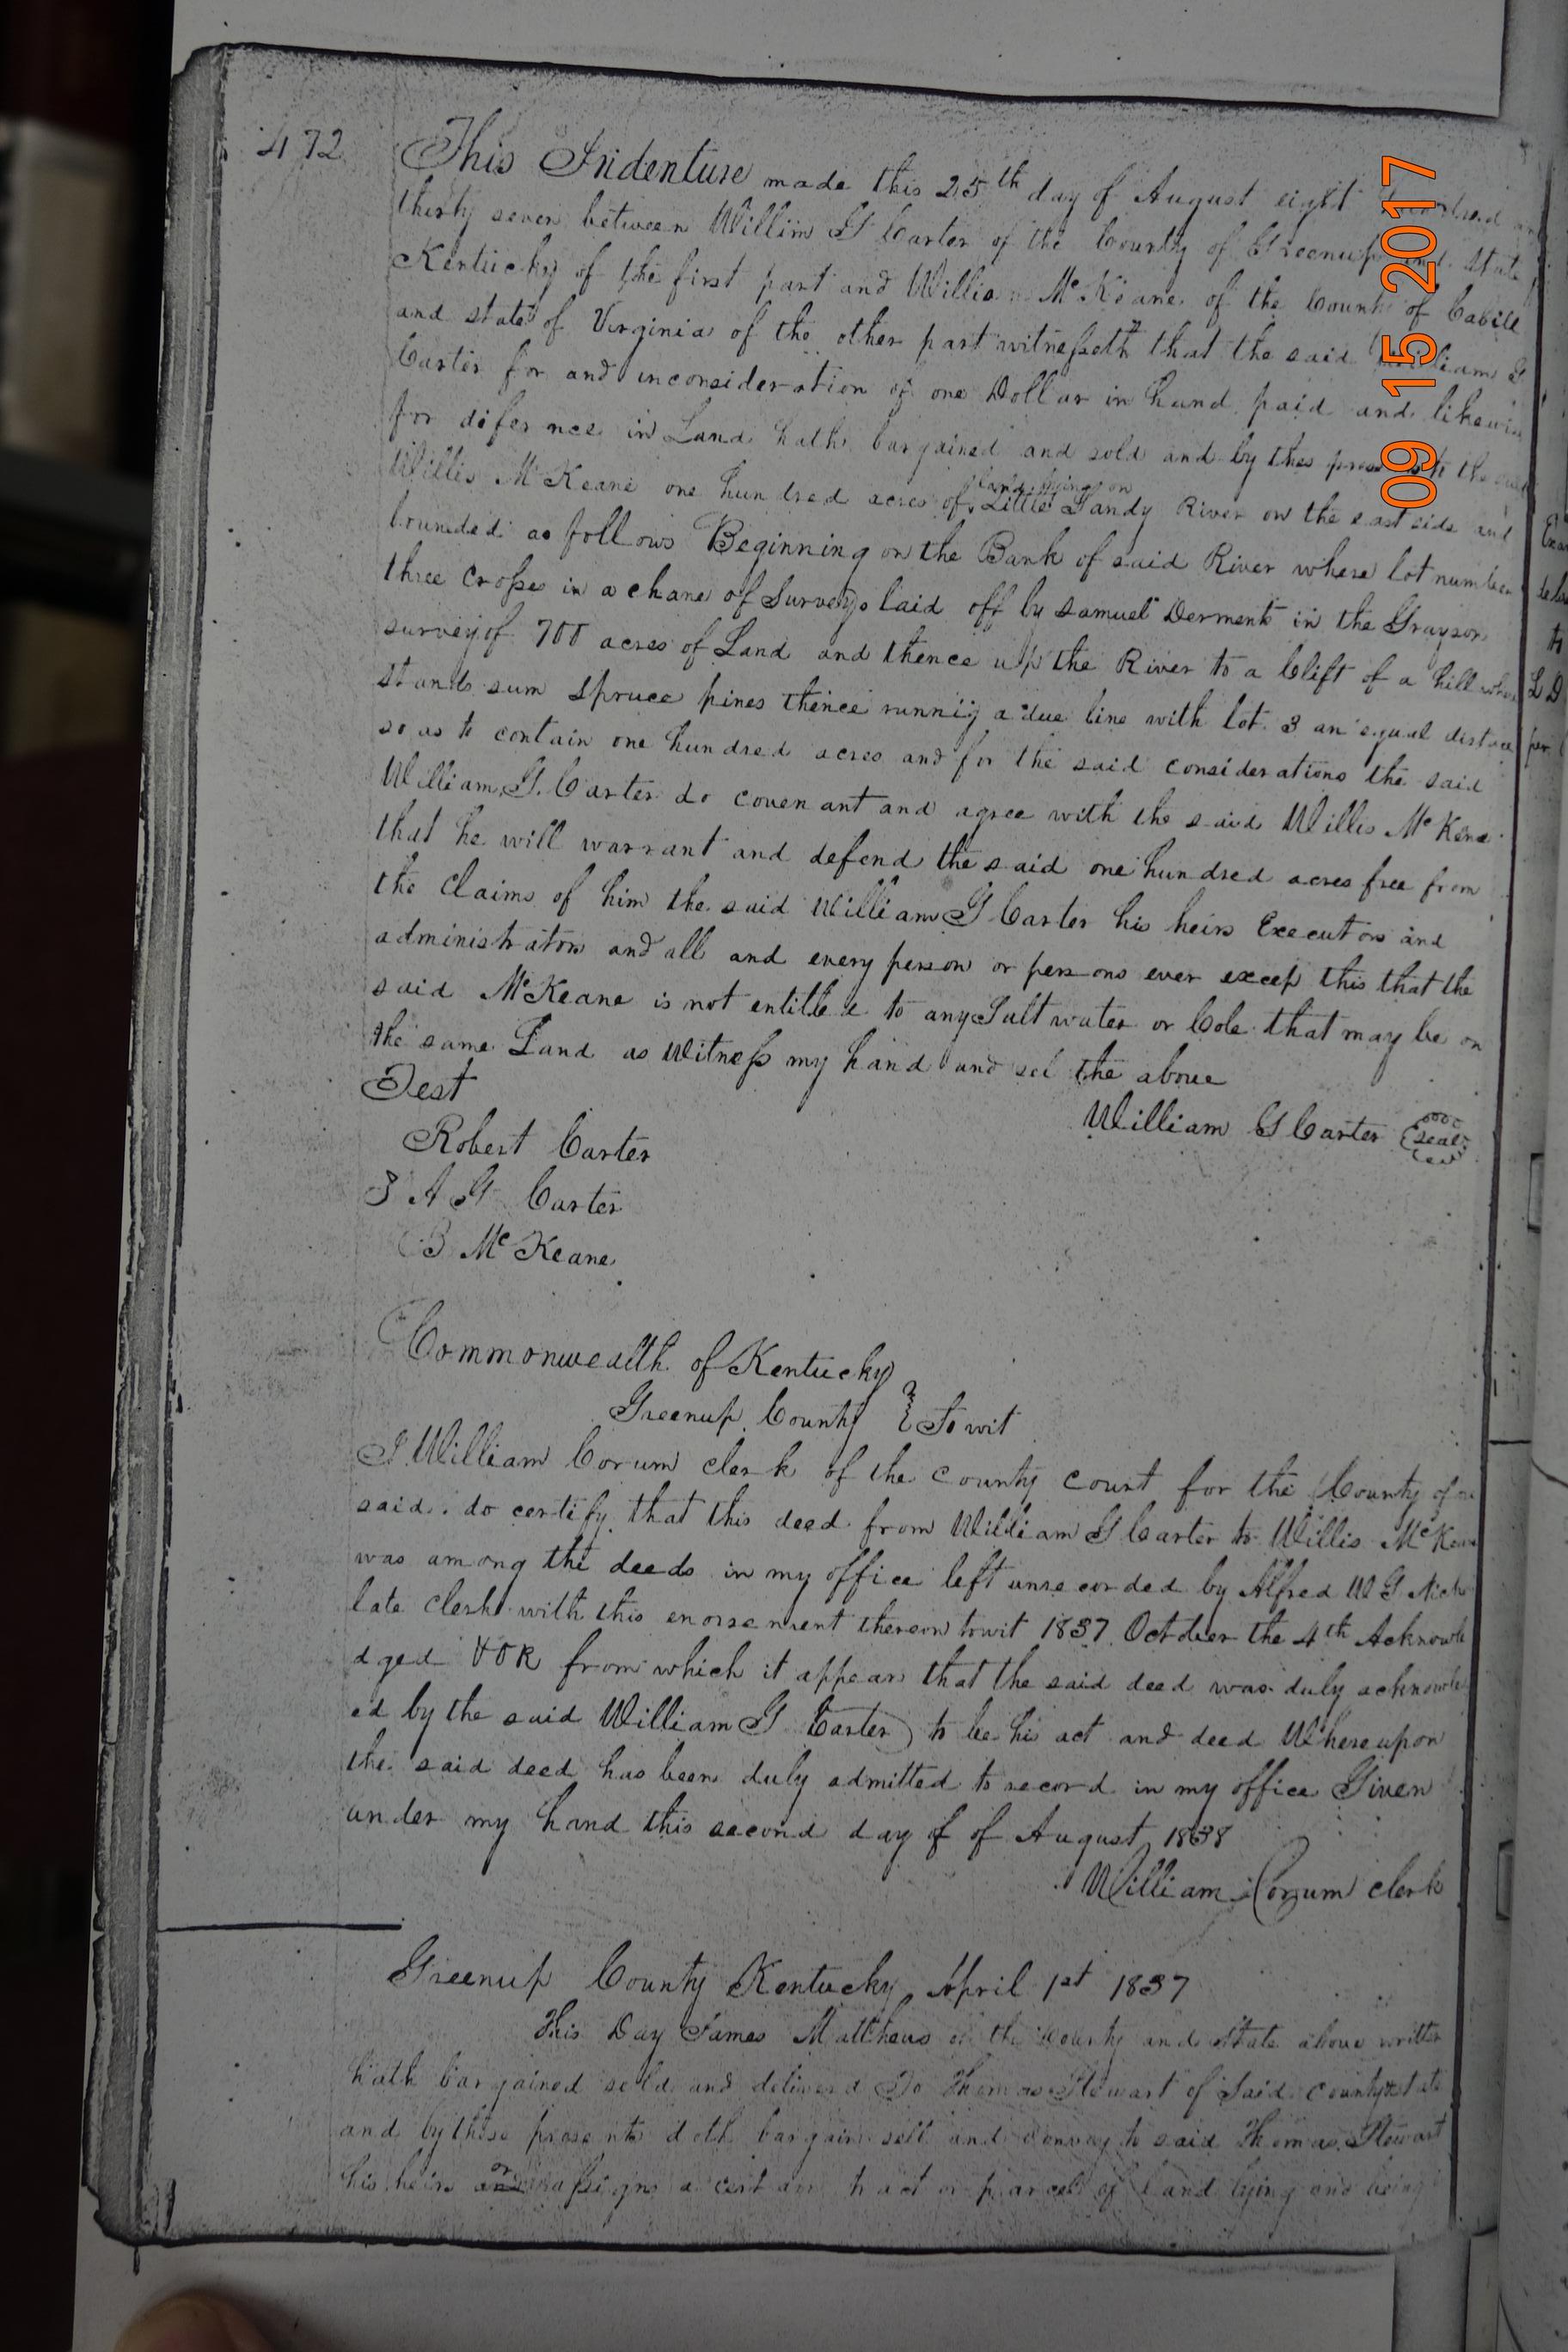 472
This Indenture made this 25th day of August eight
thirty seven between Willim G Carter of the County of Greenup and State
Kentucky of the first part and Willis McKeane of the County of Cabell
and state of Virginia of the other part witnesseth that the said William G
Carter for and inconsideration of one Dollar in hand paid and likewise
for diference in Land hath bargained and sold and by thes the said
land lying on
Willis McKeane one hundred acres of Little Sandy River on the east side and
bounded as follows Beginning on the Bank of said River where lot number
three Crosses in a chane of Surveys laid off by Samuel Derment in the Grayson
survey of 700 acres of Land and thence up the River to a Clift of a hill where
stands sum spruce pines thence runnig a due line with lot 3 an equal distace
so as to contain one hundred acres and for the said considerations the said
William G. Carter do covenant and agree with the said Willis McKene
that he will warrant and defend the said one hundred acres free from
the Claims of him the said William G Carter his heirs Executors and
administrators and all and every person or persons ever excep this that the
said McKeane is not entitle to any Salt water or Cole that may be on
the same Land as Witness my hand and sel the above
Test
William G Carter Seal
Robert Carter
A G Carter
B McKeane
Commonwealth of Kentucky
Greenup County } To wit
I William Corum clerk of the county court for the County of
said do certify that this deed from William G Carter to Willis McKeane
was among the deeds in my office left unrecorded by Alfred W G
late clerk with this enorsement thereon towit 1837 October the 4th Acknowle
dged &OR from which it appears that the said deed was duly acknowle
ed by the said William G Carter to be his act and deed Whereupon
the said deed has been duly admitted to record in my office Given
under my hand this second day of of August 1838
William Corum clerk
Greenup County Kentucky April 1st 1837
This Day James Matthews of the County and State above written
hath bargained sold and deliverd To Thomas Stewart of Said county & state
and by these presents doth bargain sell and convey to said Thomas Stewart
or
his heirs and assigns a certain tract or parcel of land lying and being
09 15 2017